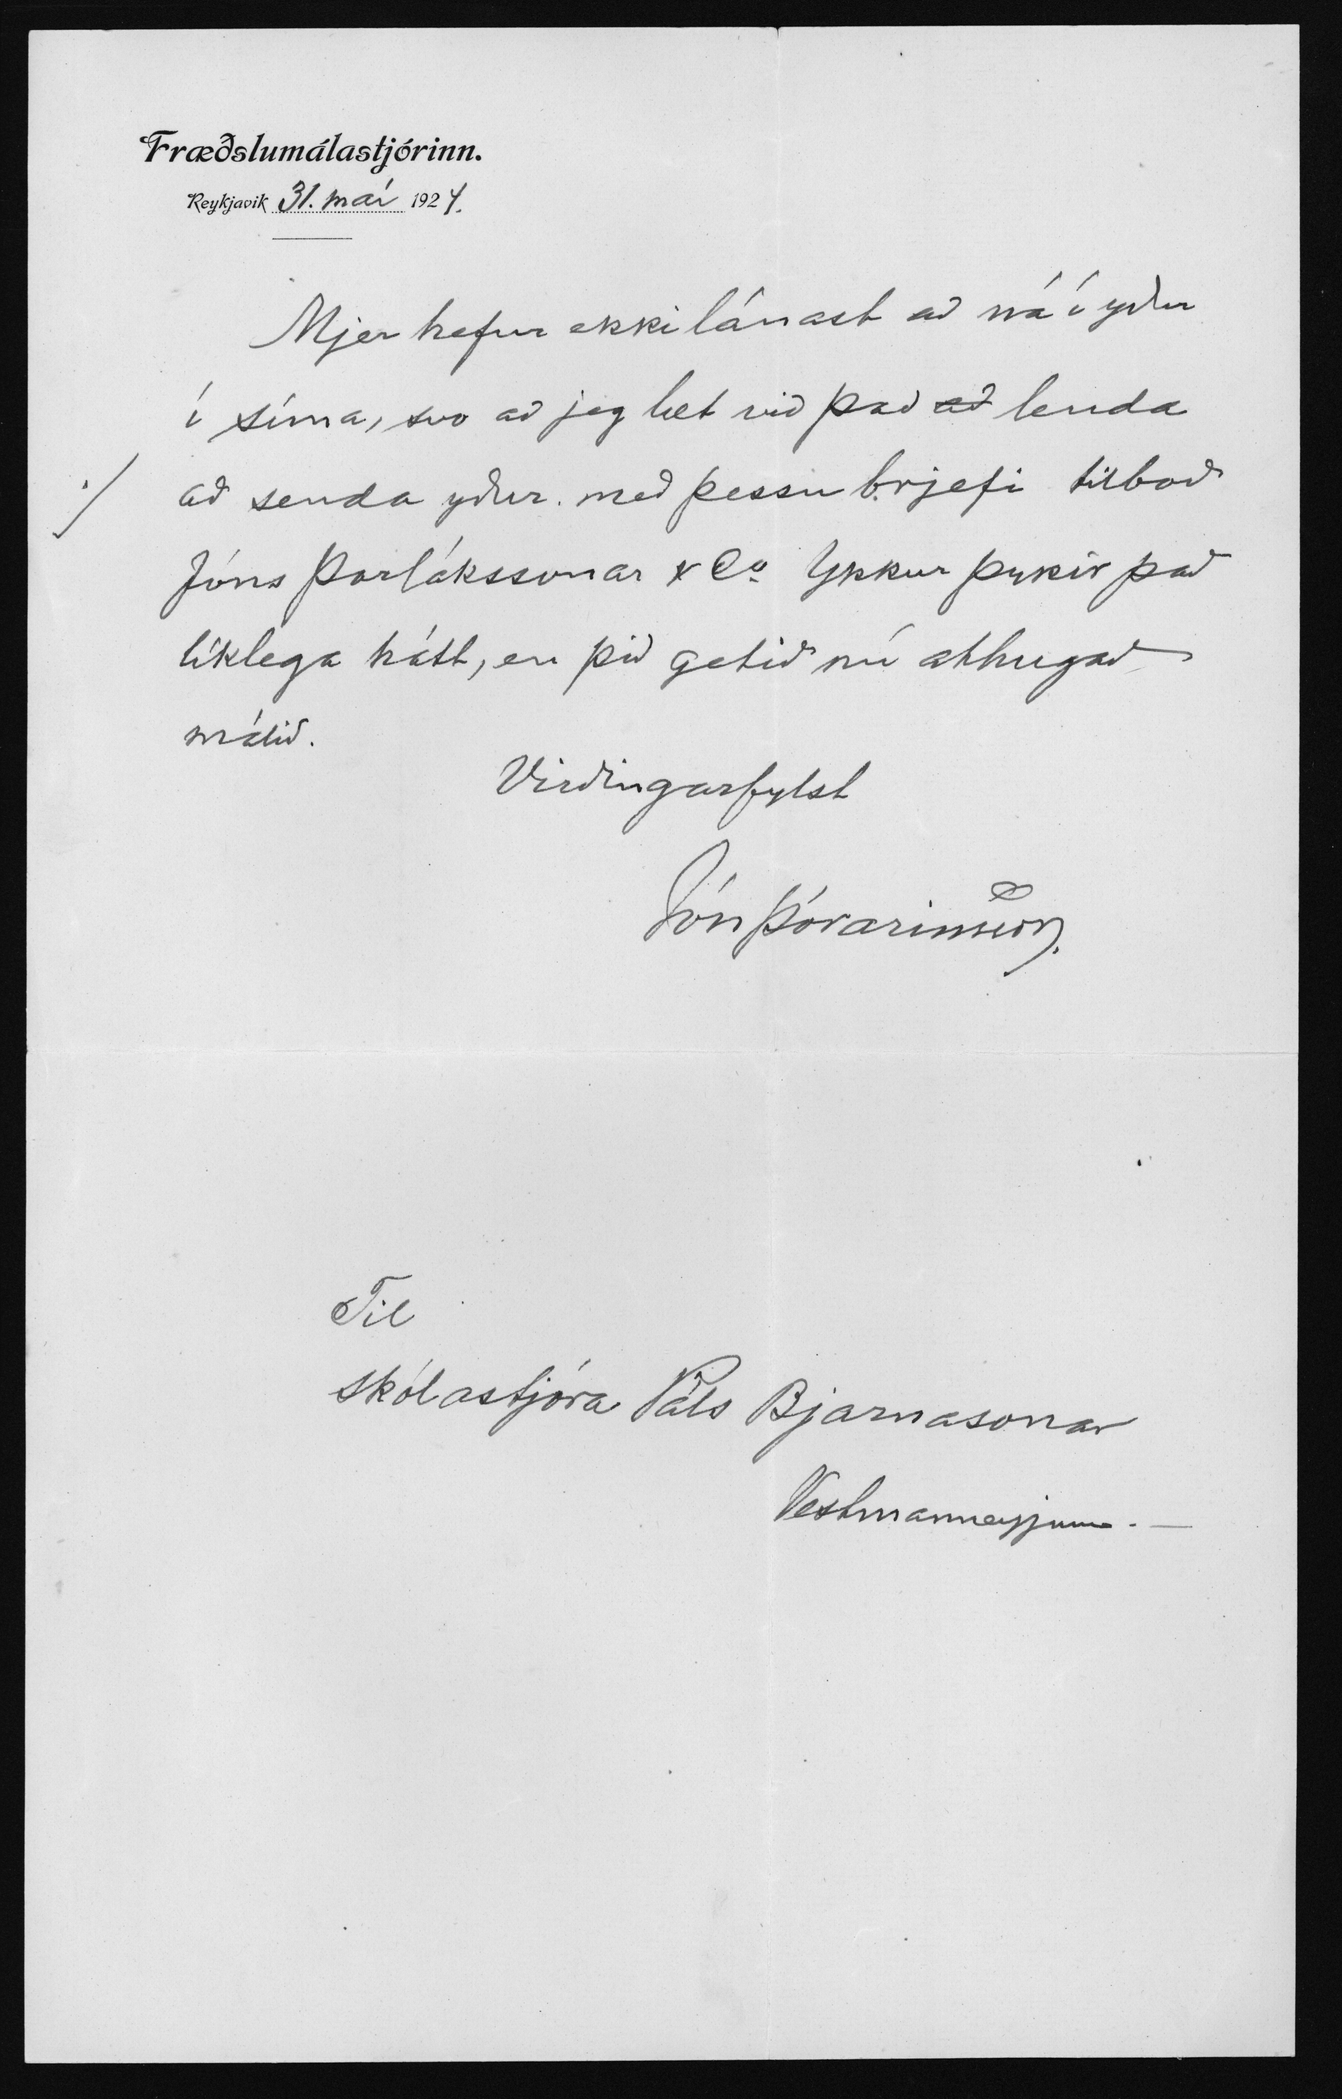 Fræðslumálastjórinn.
Reykjavik 31. maí 1924.
Mjer hefur ekki lánast að ná í yður
í síma, svo að jeg læt við það að lenda
./. að senda yður með þessu brjefi tilboð
Jóns Þorlákssonar & Co. Ykkur þykir það
líklega hátt, en þið getið nú athugað
málið.
Virðingarfylst
Jón Þórarinsson.
Til
skólastjóra Páls Bjarnasonar
Vestmanneyjum. —